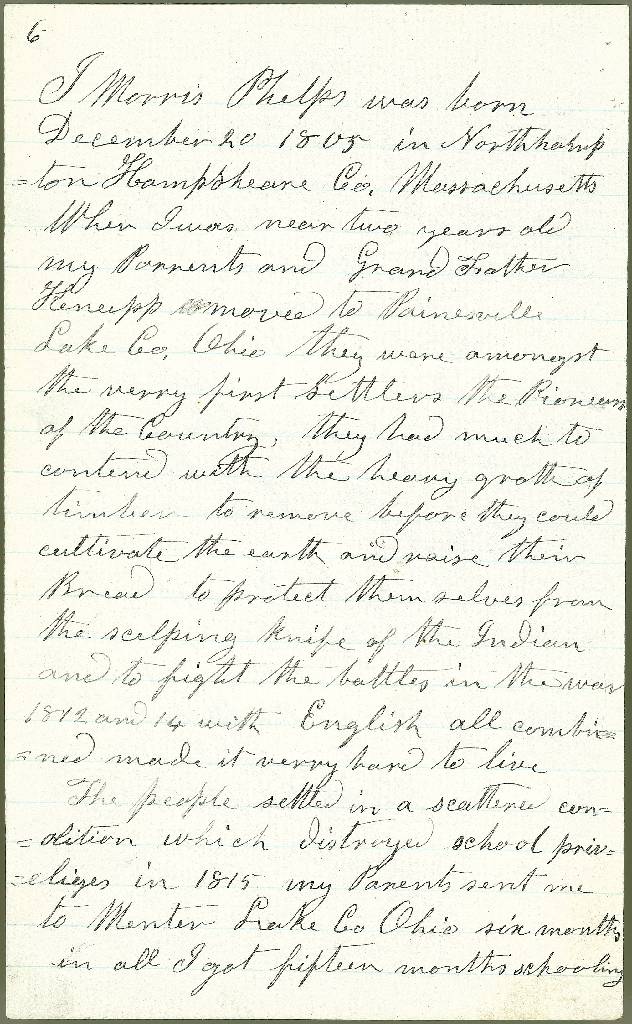 6
I Morris Phelps was born
December 20 1805 in Northhamp
=ton Hampsheare Co, Massachusetts
When I was near two years old
my Parrents and Grand Father
removed to Painesville
Lake Co, Ohio they were amongst
the verry first settlers the Pioneers
of the Country, they had much to
contend with the heavy groth of
timber to remove before they could
cultivate the earth and raise their
Bread to protect themselves from
the scelping knife of the Indian
and to fight the battles in the war
1812 and 14 with English all combi=
=ned made it verry hard to live
The people settled in a scattered con-
=dition which distroyed school priv=
=eliges in 1815 my Parents sent me
to Menter Lake Co Ohio six months
in all I got fifteen months schooling